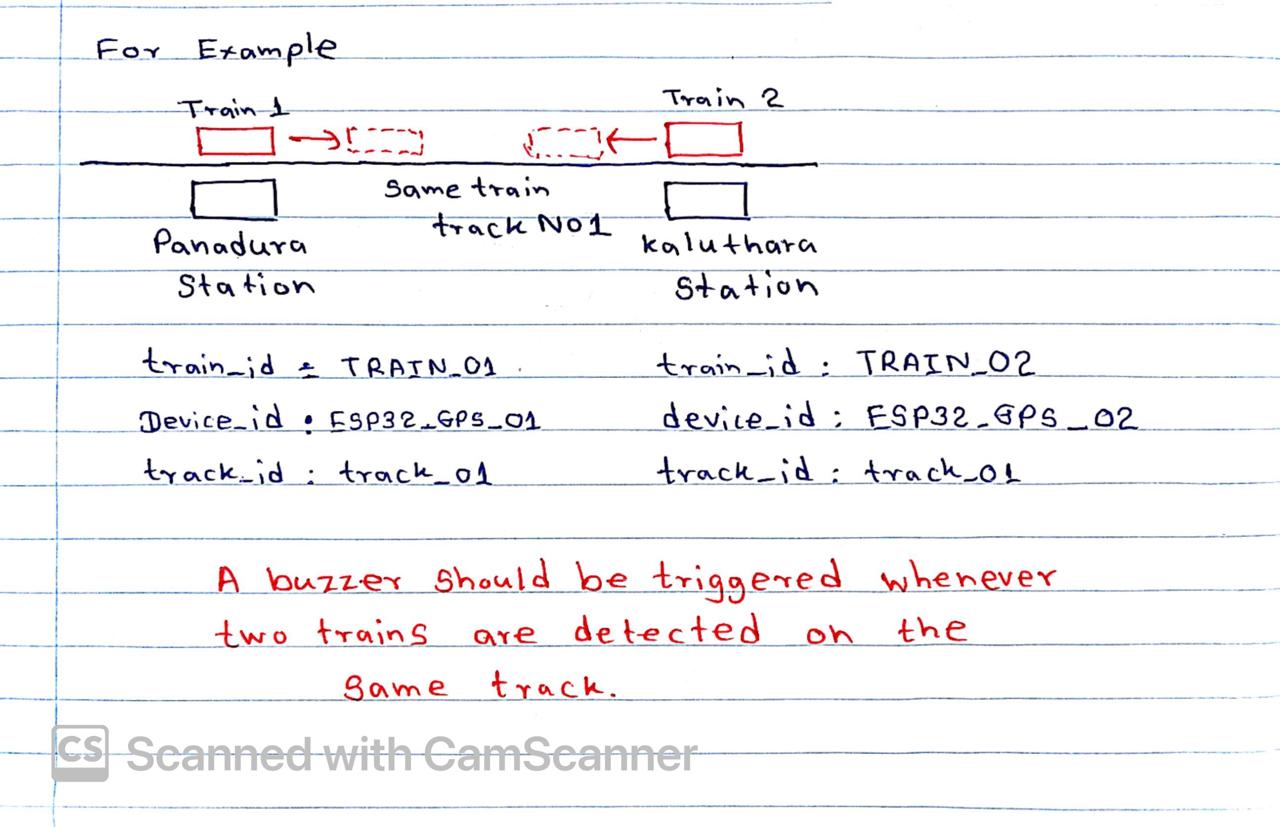 For Example
Train 1
Train 2
Same train
track No1
Panadura
Station
Kaluthara
Station
train_id = TRAIN_01
Device_id : ESP32_GPS_01
track_id : track_01
train_id : TRAIN_02
device_id : ESP32_GPS_02
track_id : track_01
A buzzer should be triggered whenever
two trains are detected on the
same track.
CS Scanned with CamScanner